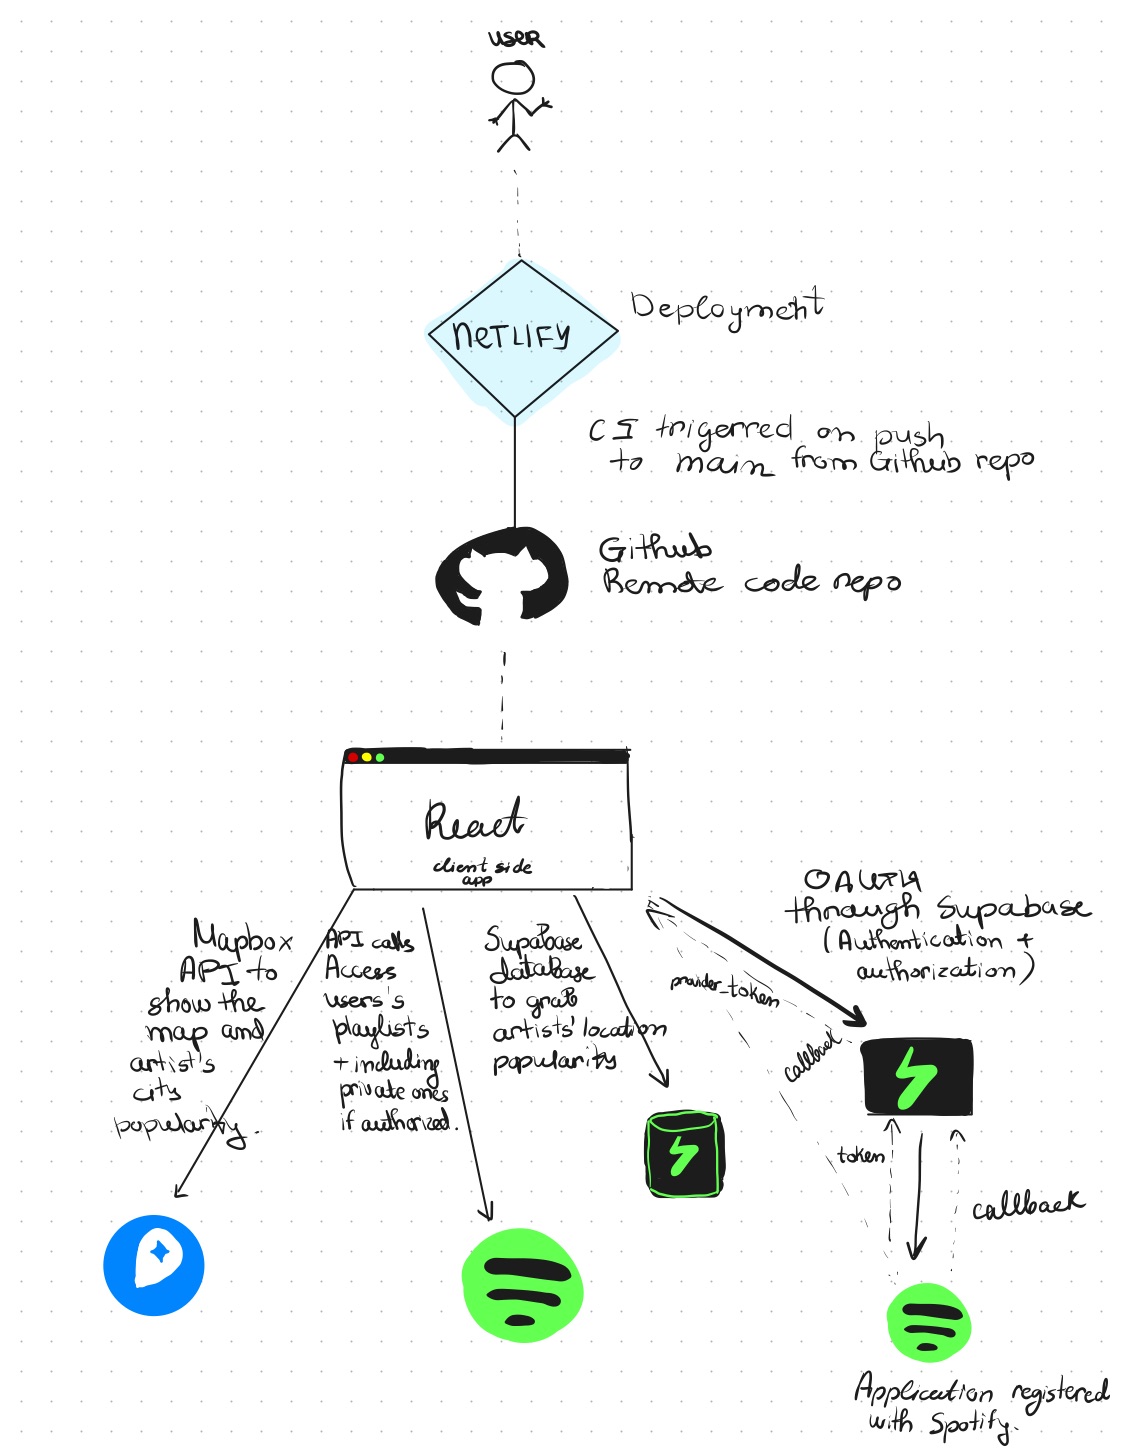 USER
NETLIFY
Deployment
CI trigerred on push
to main from Github repo
Github
Remote code repo
React
client side
app
Mapbox
API to
show the
map and
artist's
city
popularity.
API calls
Access
users's
playlists
+ including
private ones
if authorized.
Supabase
database
to grab
artists' location
popularity
OAUTH
through Supabase
(Authentication +
authorization)
provider_token
callback
token
callback
Application registered
with Spotify.